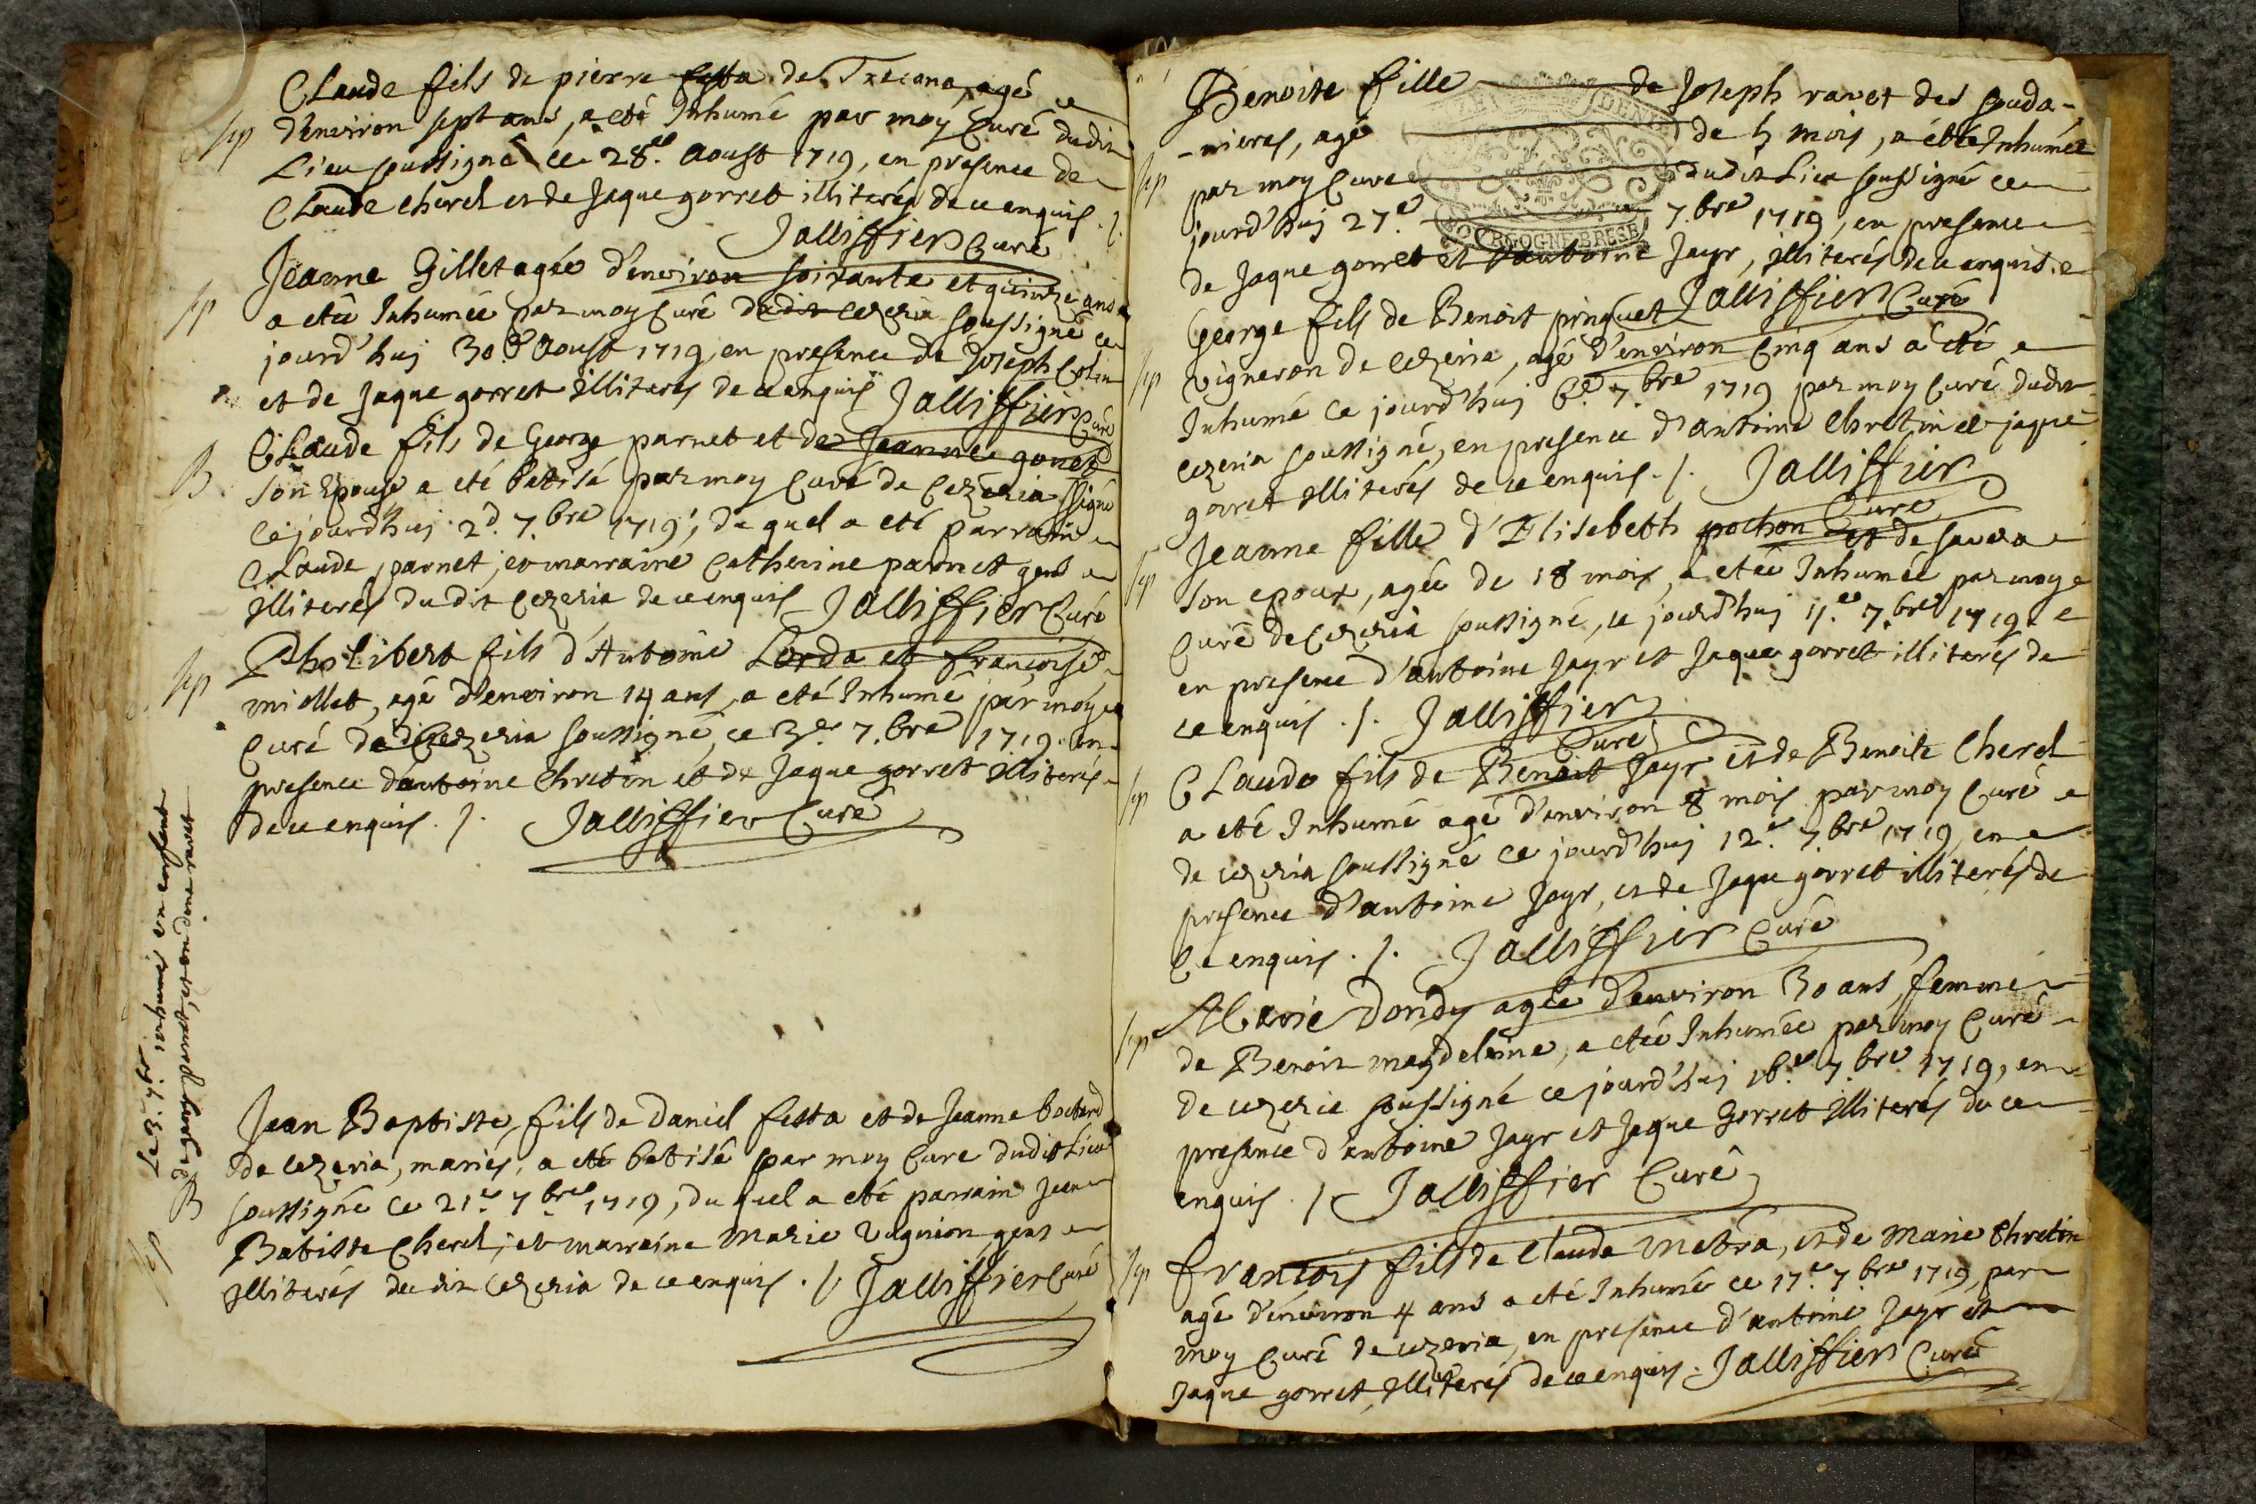 Claude fils de pierre festa de Treconas, agé
sep
d'environ sept ans, a eté Inhumé par moy Curé dudit
Lieu soussigné ce 28.e aoust 1719, en presence de
Claude cherel et de Jaque gorret illiterés de ce enquis ./.
Jallissier Curé
Jeanne Gillet agée d'environ soixante et quinze ans
sep
a etée Inhumée par moy Curé dudit cezeria soussigné ce
jourd'huj 30.e aoust 1719, en presence de Joseph Colin
et de Jaque gorret illiterés de ce enquis Jallissier Curé
Claude fils de George parnet et de Jeanne gonet
B
son Epouse a eté batisé par moy Curé de Cezeria ssigné
ce jourd'huj 2d. 7.bre 1719; du quel a eté parrain
Claude parnet; et marraine Catherine parnet gens
illiterés dudit Cezeria de ce enquis Jallissier Curé
Philibert fils d'Antoine Lorda et françoise
sep
miollet, agé d'environ 14 ans, a eté Inhumé par moy
Curé dudit Cezeria soussigné, ce 3.e 7.bre 1719 en
presence d'antoine Chretin et de Jaque gorret illiterés
de ce enquis ./. Jallissier Curé
Le 3. 7.br inhumés un enfant
de George parnet et un d'une ravet
sep
Jean Baptiste, fils de Daniel festa et de Jeanne bochard
B
de cezeria, mariés, a eté batisé par moy Cure dudit Lieu
soussigné ce 21.e 7.bre 1719, du quel a eté parrain Jean
Batiste Cherel; et marraine Marie Vugnion gens
illiterés dudit Cezeria de ce enquis ./. Jallissier Curé
Benoite fille de Joseph ravet des souda-
-nieres, agé de 5 mois, a etée Inhumée
sep
par moy Curé dudit Lieu soussigné ce
jourd'huj 27.e 7.bre 1719, en presence
BOURGOGNE BRESSE
de Jaque gorret et d'antoine Jayr, illiterés de ce enquis.
George fils de Benoit pringuet Jallissier Curé
sep
vigneron de cezeria, agé d'environ Cinq ans a eté
Inhumé ce jourd'huj 6.e 7.bre 1719 par moy Curé dudit
cezeria soussigné, en presence d'antoine Chretin et jaque
gorret illiterés de ce enquis ./. Jallissier
Curé
Jeanne fille d'Elisebeth pochon et de sauva
sep
son epoux, agée de 18 mois, a etée Inhumée par moy
Curé de Cezeria soussigné, ce jourd'huj 11.e 7.bre 1719
en presence d'antoine Jayr et Jaque gorret illiterés de
ce enquis ./. Jallissier
Curé
Claude fils de Benoit Jayr et de Benoite Cherel
sep
a eté Inhumé agé d'environ 8 mois par moy Curé
de cezeria soussigné ce jourd'huj 12.e 7.bre 1719, en
presence d'antoine Jayr, et de Jaque gorret illiterés de
Ce enquis ./. Jallissier Curé
Marie Dondy agée d'environ 30 ans femme
sep
de Benoit magdelaine, a etée Inhumée par moy Curé
de cezerie soussigné ce jourd'huj 16.e 7.bre 1719, en
presence d'antoine Jayr et Jaque Gorret illiterés de ce
enquis ./. Jallissier Curé
françois fils de Claude Mebra, et de Marie Chretin
sep
agé d'environ 4 ans a eté Inhumé ce 17.e 7.bre 1719, par
moy Curé de cezeria, en presence d'antoine Jayr et
Jaque gorret, illiterés de ce enquis. Jallissier Curé